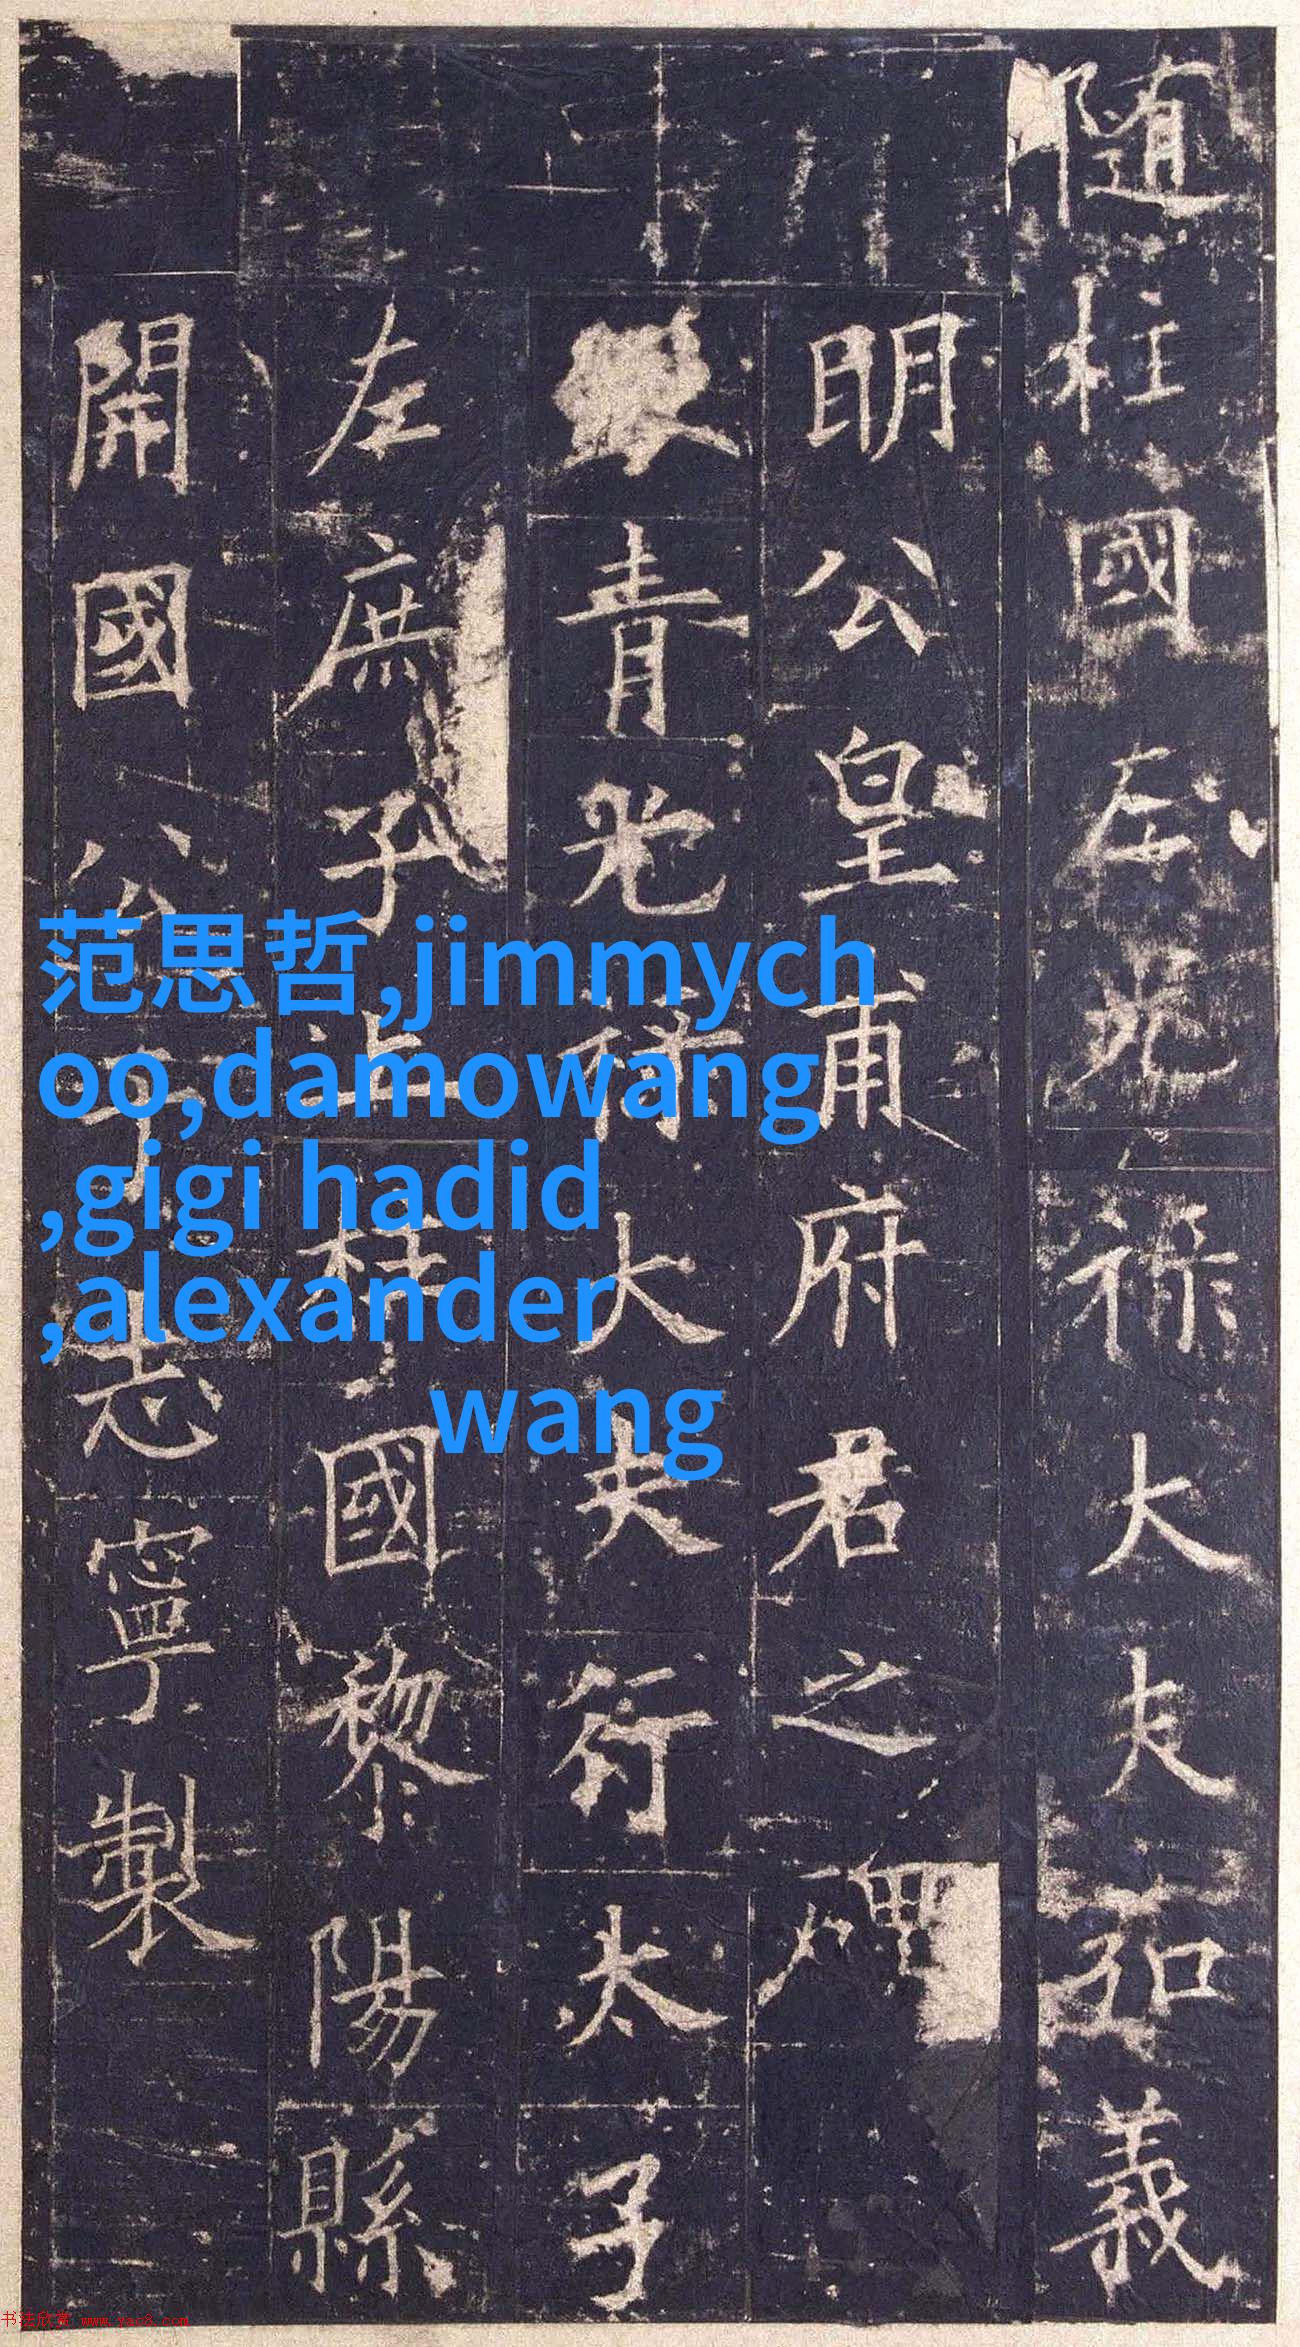 隨柱國左光祿大夫弘義
明公皇甫府君之碑
青光祿大夫行太子
左庶子上柱國黎陽縣
開國公于志寧製
范思哲,jimmych
oo,damowang
,gigi hadid
,alexander
wang
书法欣赏 www.yac8.com